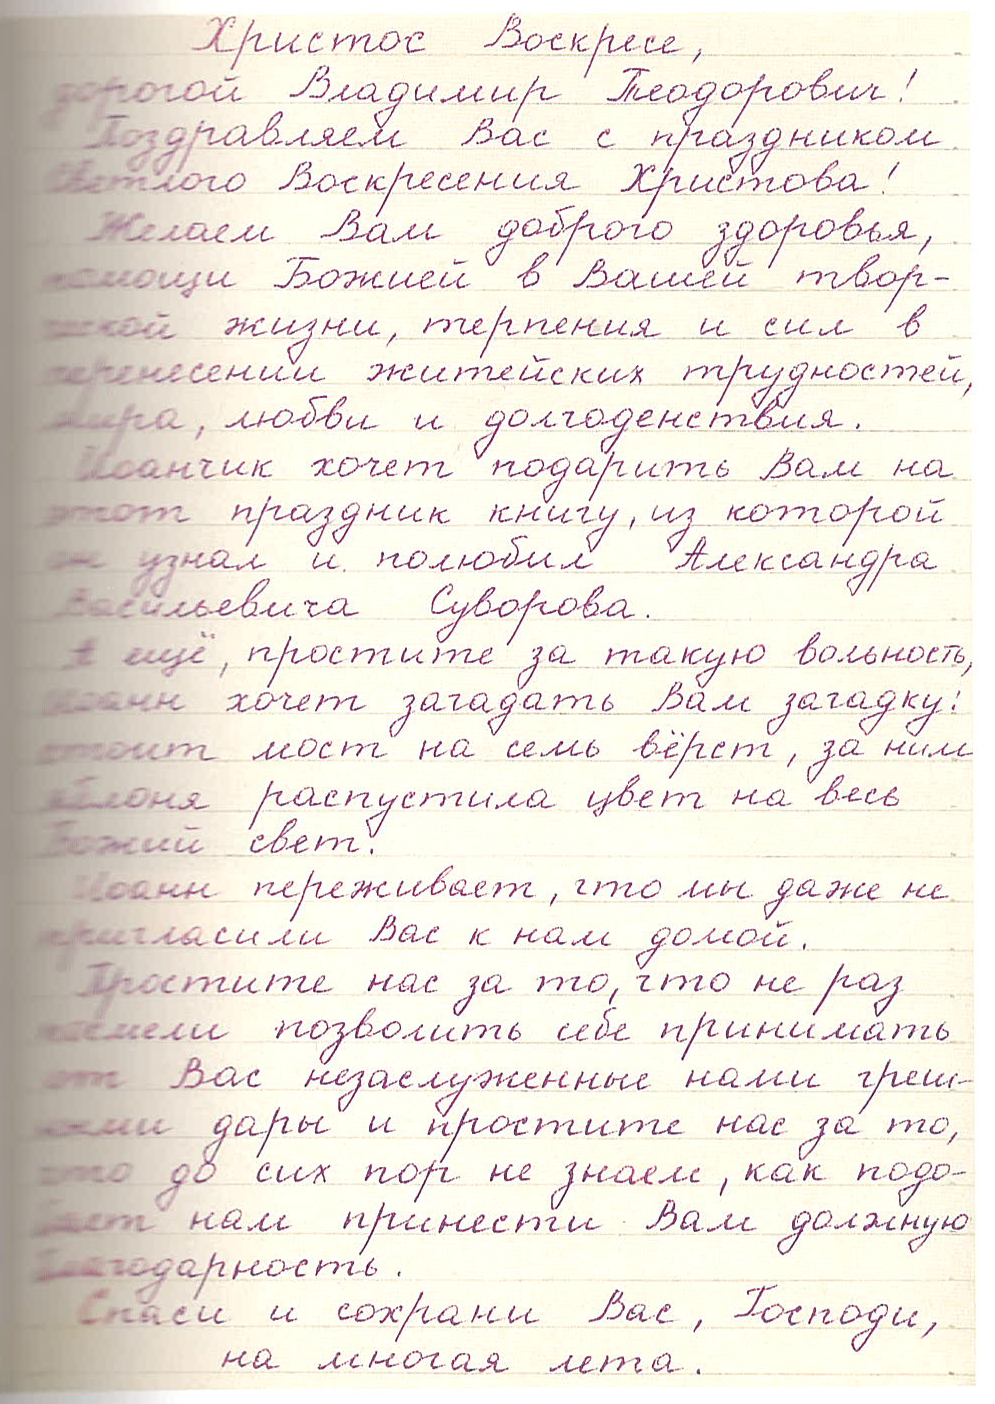 Христос Воскресе,
дорогой Владимир Теодорович!
Поздравляем Вас с праздником
Светлого Воскресения Христова!
Желаем Вам доброго здоровья,
помощи Божией в Вашей твор-
ческой жизни, терпения и сил в
перенесении житейских трудностей,
мира, любви и долгоденствия.
Иоанчик хочет подарить Вам на
этот праздник книгу, из которой
он узнал и полюбил Александра
Васильевича Суворова.
А ещё, простите за такую вольность,
Иоанн хочет загадать Вам загадку:
стоит мост на семь вёрст, за ним
яблоня распустила цвет на весь
Божий свет.
Иоанн переживает, что мы даже не
пригласили Вас к нам домой.
Простите нас за то, что не раз
посмели позволить себе принимать
от Вас незаслуженные нами греш-
ными дары и простите нас за то,
что до сих пор не знаем, как подо-
бает нам принести Вам должную
благодарность.
Спаси и сохрани Вас, Господи,
на многая лета.